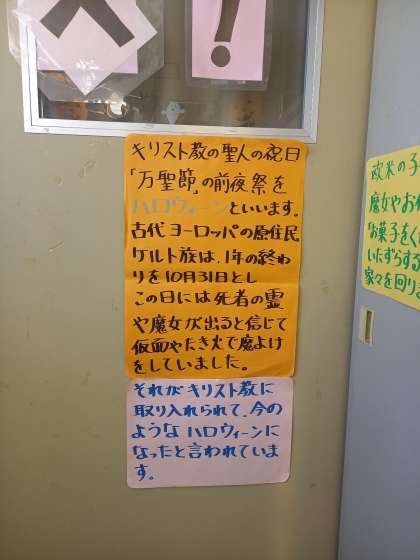 べ
！
キリスト教の聖人の祝日
「万聖節」の前夜祭を
ハロウィーンといいます。
古代ヨーロッパの原住民
ケルト族は、1年の終わ
りを10月31日とし
この日には死者の霊
や魔女が出ると信じて
仮面やたき火で魔よけ
をしていました。
それがキリスト教に
取り入れられて、今の
ようなハロウィーンに
なったと言われていま
す。
欧米の子
魔女やお
「お菓子をく
いたずらする
家々を回りま